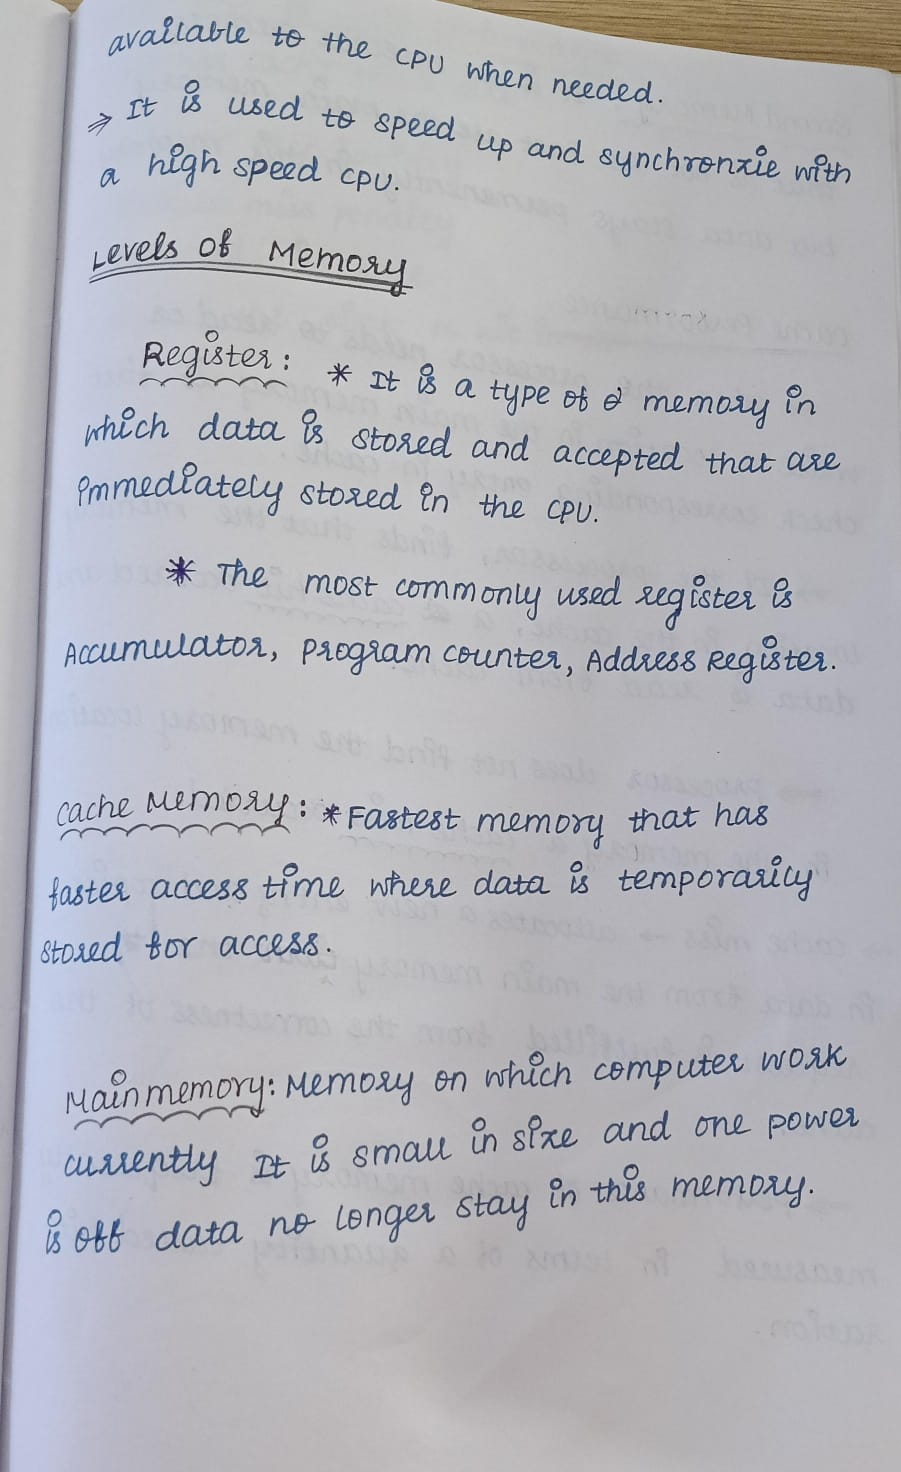 available to the CPU when needed.
⇒ It is used to speed up and synchronzie with
a high speed CPU.
Levels of Memory
Register: * It is a type of memory in
which data is stored and accepted that are
immediately stored in the CPU.
* The most commonly used register is
Accumulator, Program counter, Address Register.
Cache Memory: * Fastest memory that has
faster access time where data is temporarily
stored for access.
Main memory: Memory on which computer work
currently It is small in size and one power
is off data no longer stay in this memory.